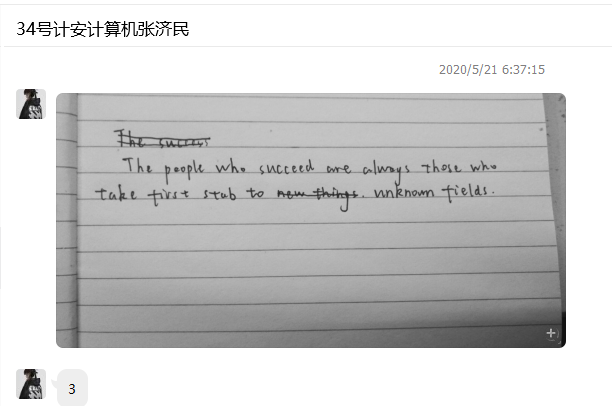 34号计安计算机张济民
2020/5/21 6:37:15
The success
The people who succeed are always those who
take first stab to new things. unknown fields.
3